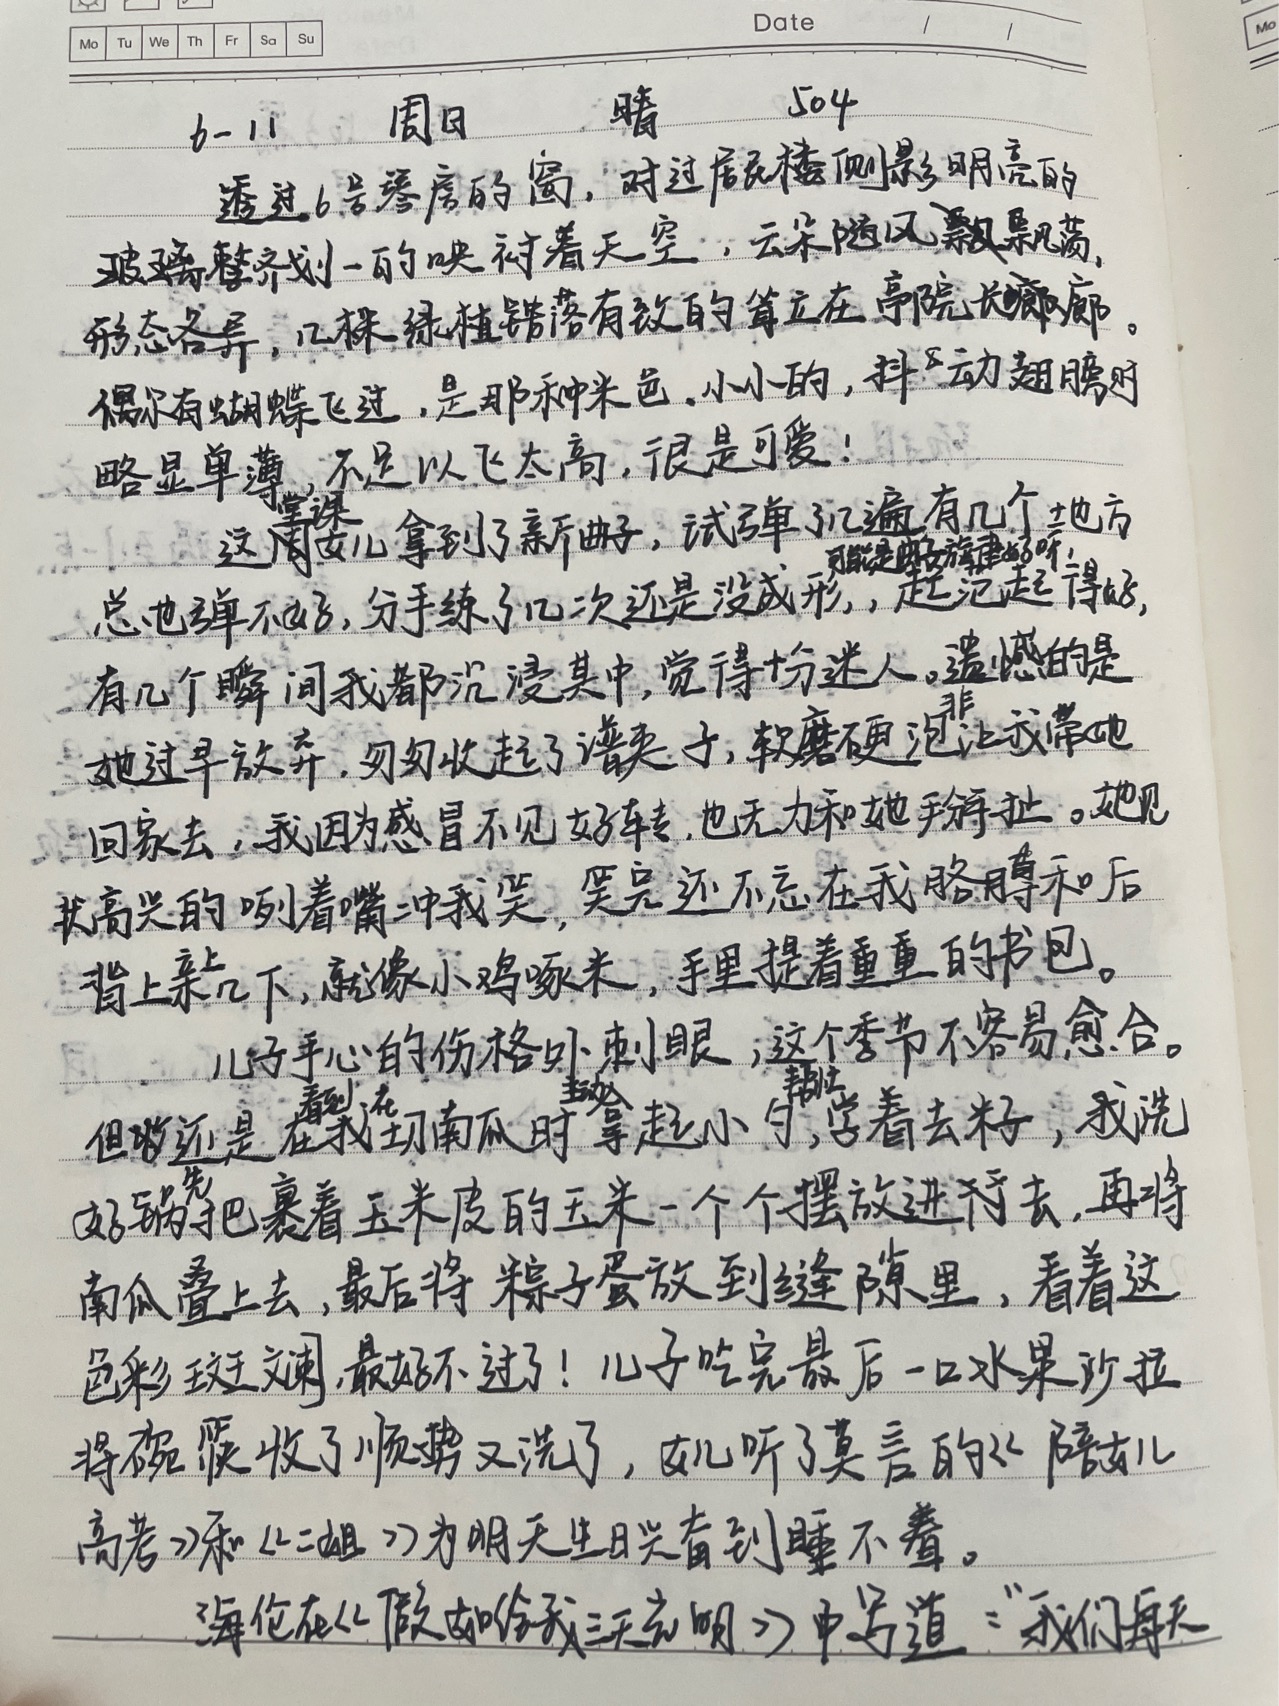 Mo Tu We Th Fr Sa Su
Date / /
Mo
6-11 周日 晴 504
透过6号琴房的窗，对过居民楼侧影明亮的
玻璃整齐划一的映衬着天空，云朵随风飘荡，
形态各异，几株绿植错落有致的耸立在亭院长廊。
偶尔有蝴蝶飞过，是那种米色。小小的，抖动翅膀时
略显单薄，不足以飞太高，很是可爱！
这堂课女儿拿到了新曲子，试弹了几遍有几个地方
总也弹不好，分手练了几次还是没成形，可能是曲子旋律好听，起范起得好，
有几个瞬间我都沉浸其中，觉得十分迷人。遗憾的是
她过早放弃，匆匆收起了谱夹子，软磨硬泡非让我带她
回家去，我因为感冒不见好转，也无力和她掰扯。她见
状高兴的咧着嘴冲我笑，笑完还不忘在我胳膊和后
背上亲上几下，就像小鸡啄米，手里提着重重的书包。
儿子手心的伤格外刺眼，这个季节不容易愈合。
但还是在看到我在切南瓜时主动拿起小勺帮忙，学着去籽，我洗
好锅先把裹着玉米皮的玉米一个个摆放进去，再将
南瓜叠上去，最后将粽子蛋放到缝隙里，看着这
色彩斑斓，最好不过了！儿子吃完最后一口水果沙拉
将碗筷收了顺势又洗了，女儿听了莫言的《陪女儿
高考》和《二姐》为明天生日兴奋到睡不着。
海伦在《假如给我三天光明》中写道："我们每天